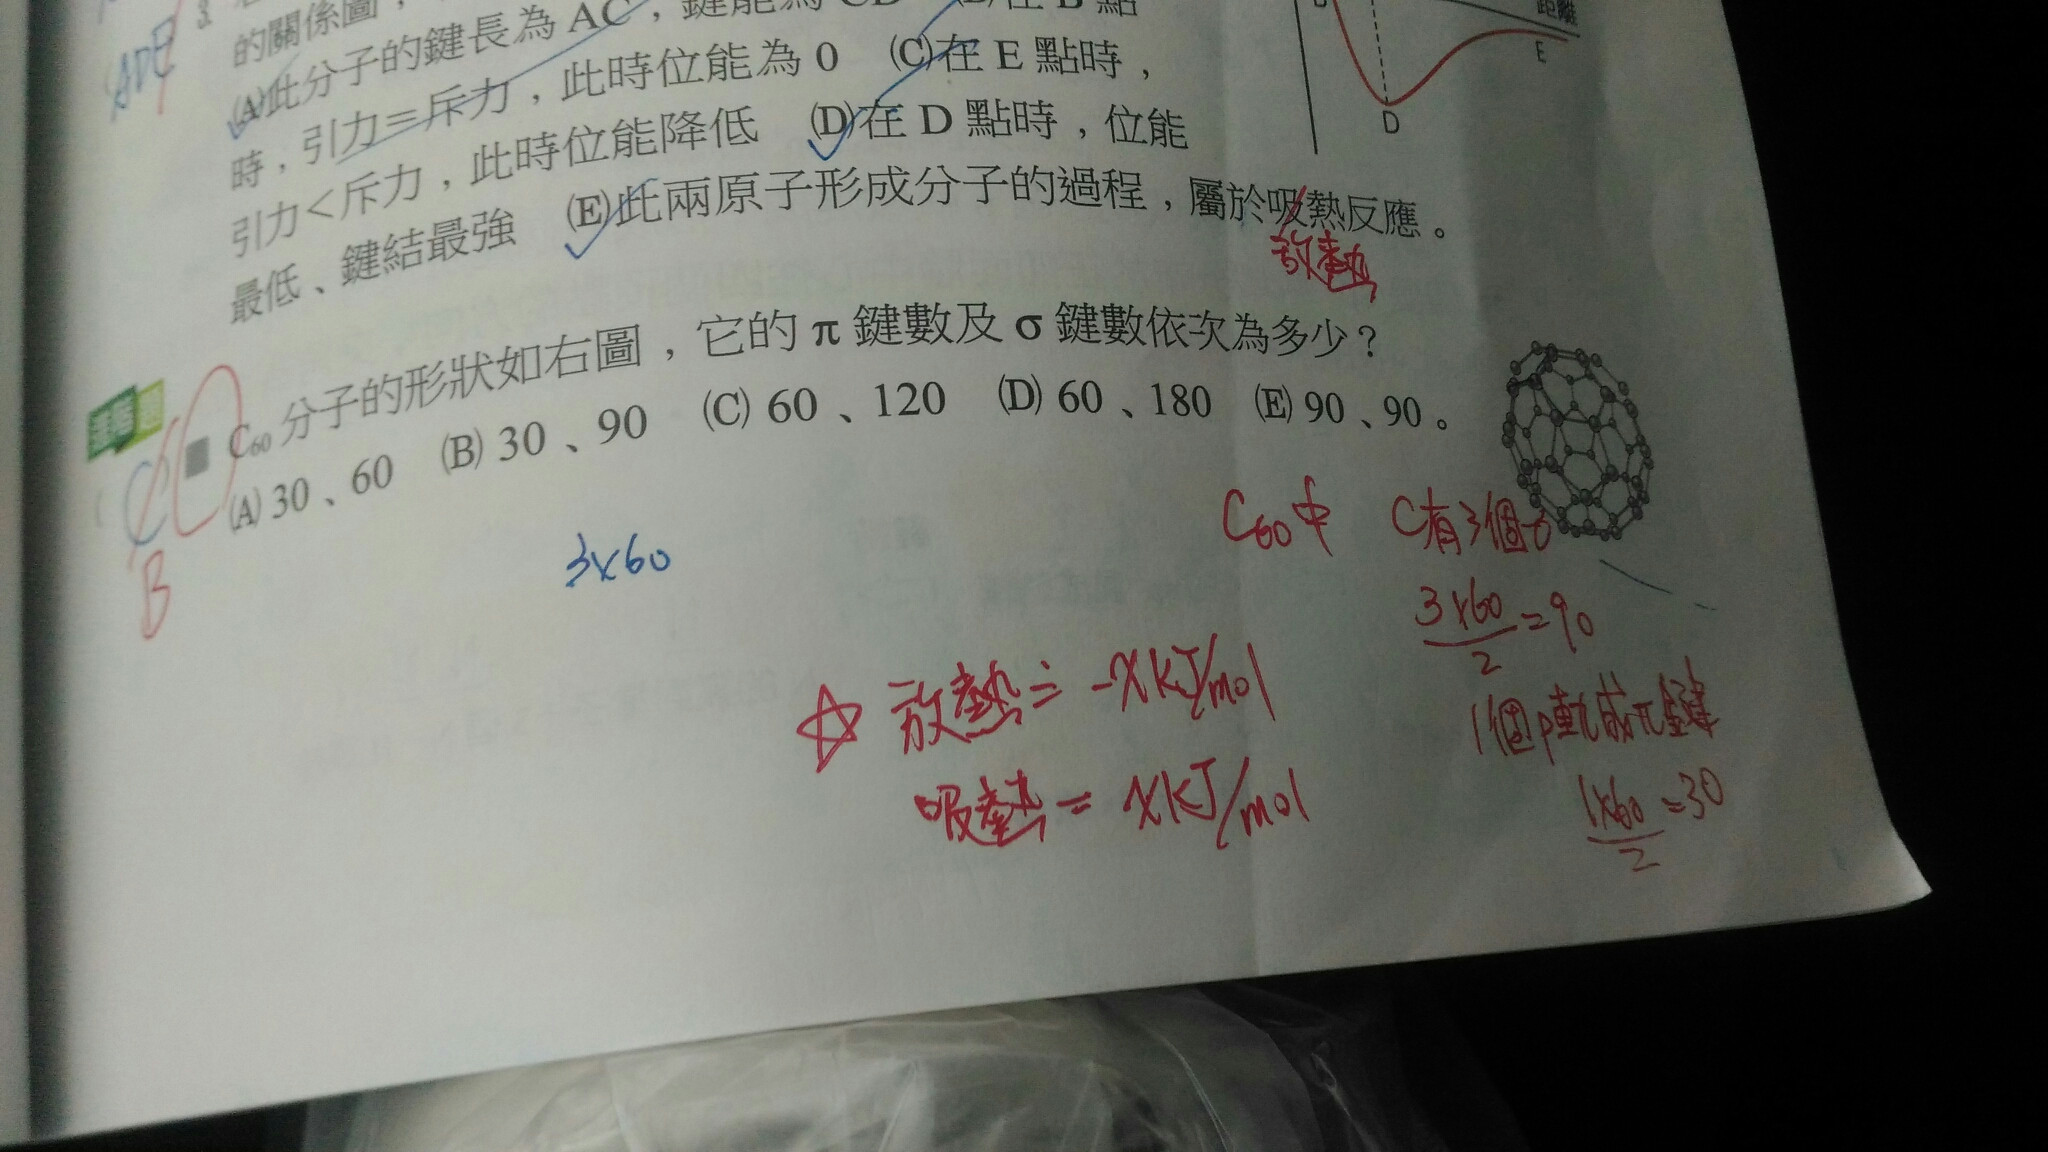 3.
的關係圖，
(A)此分子的鍵長為 AC，鍵能為 CD
在 B 點
時，引力＝斥力，此時位能為 0 (C)在 E 點時，
引力＜斥力，此時位能降低 (D)在 D 點時，位能
最低、鍵結最強 (E)此兩原子形成分子的過程，屬於吸熱反應。
放熱
距離
E
D
C60 分子的形狀如右圖，它的 π 鍵數及 σ 鍵數依次為多少？
(A) 30、60 (B) 30、90 (C) 60、120 (D) 60、180 (E) 90、90。
B
3×60
C60中 C有3個σ
3×60/2=90
1個p軌成π鍵
1×60/2=30
☆ 放熱= -xkJ/mol
吸熱= xkJ/mol